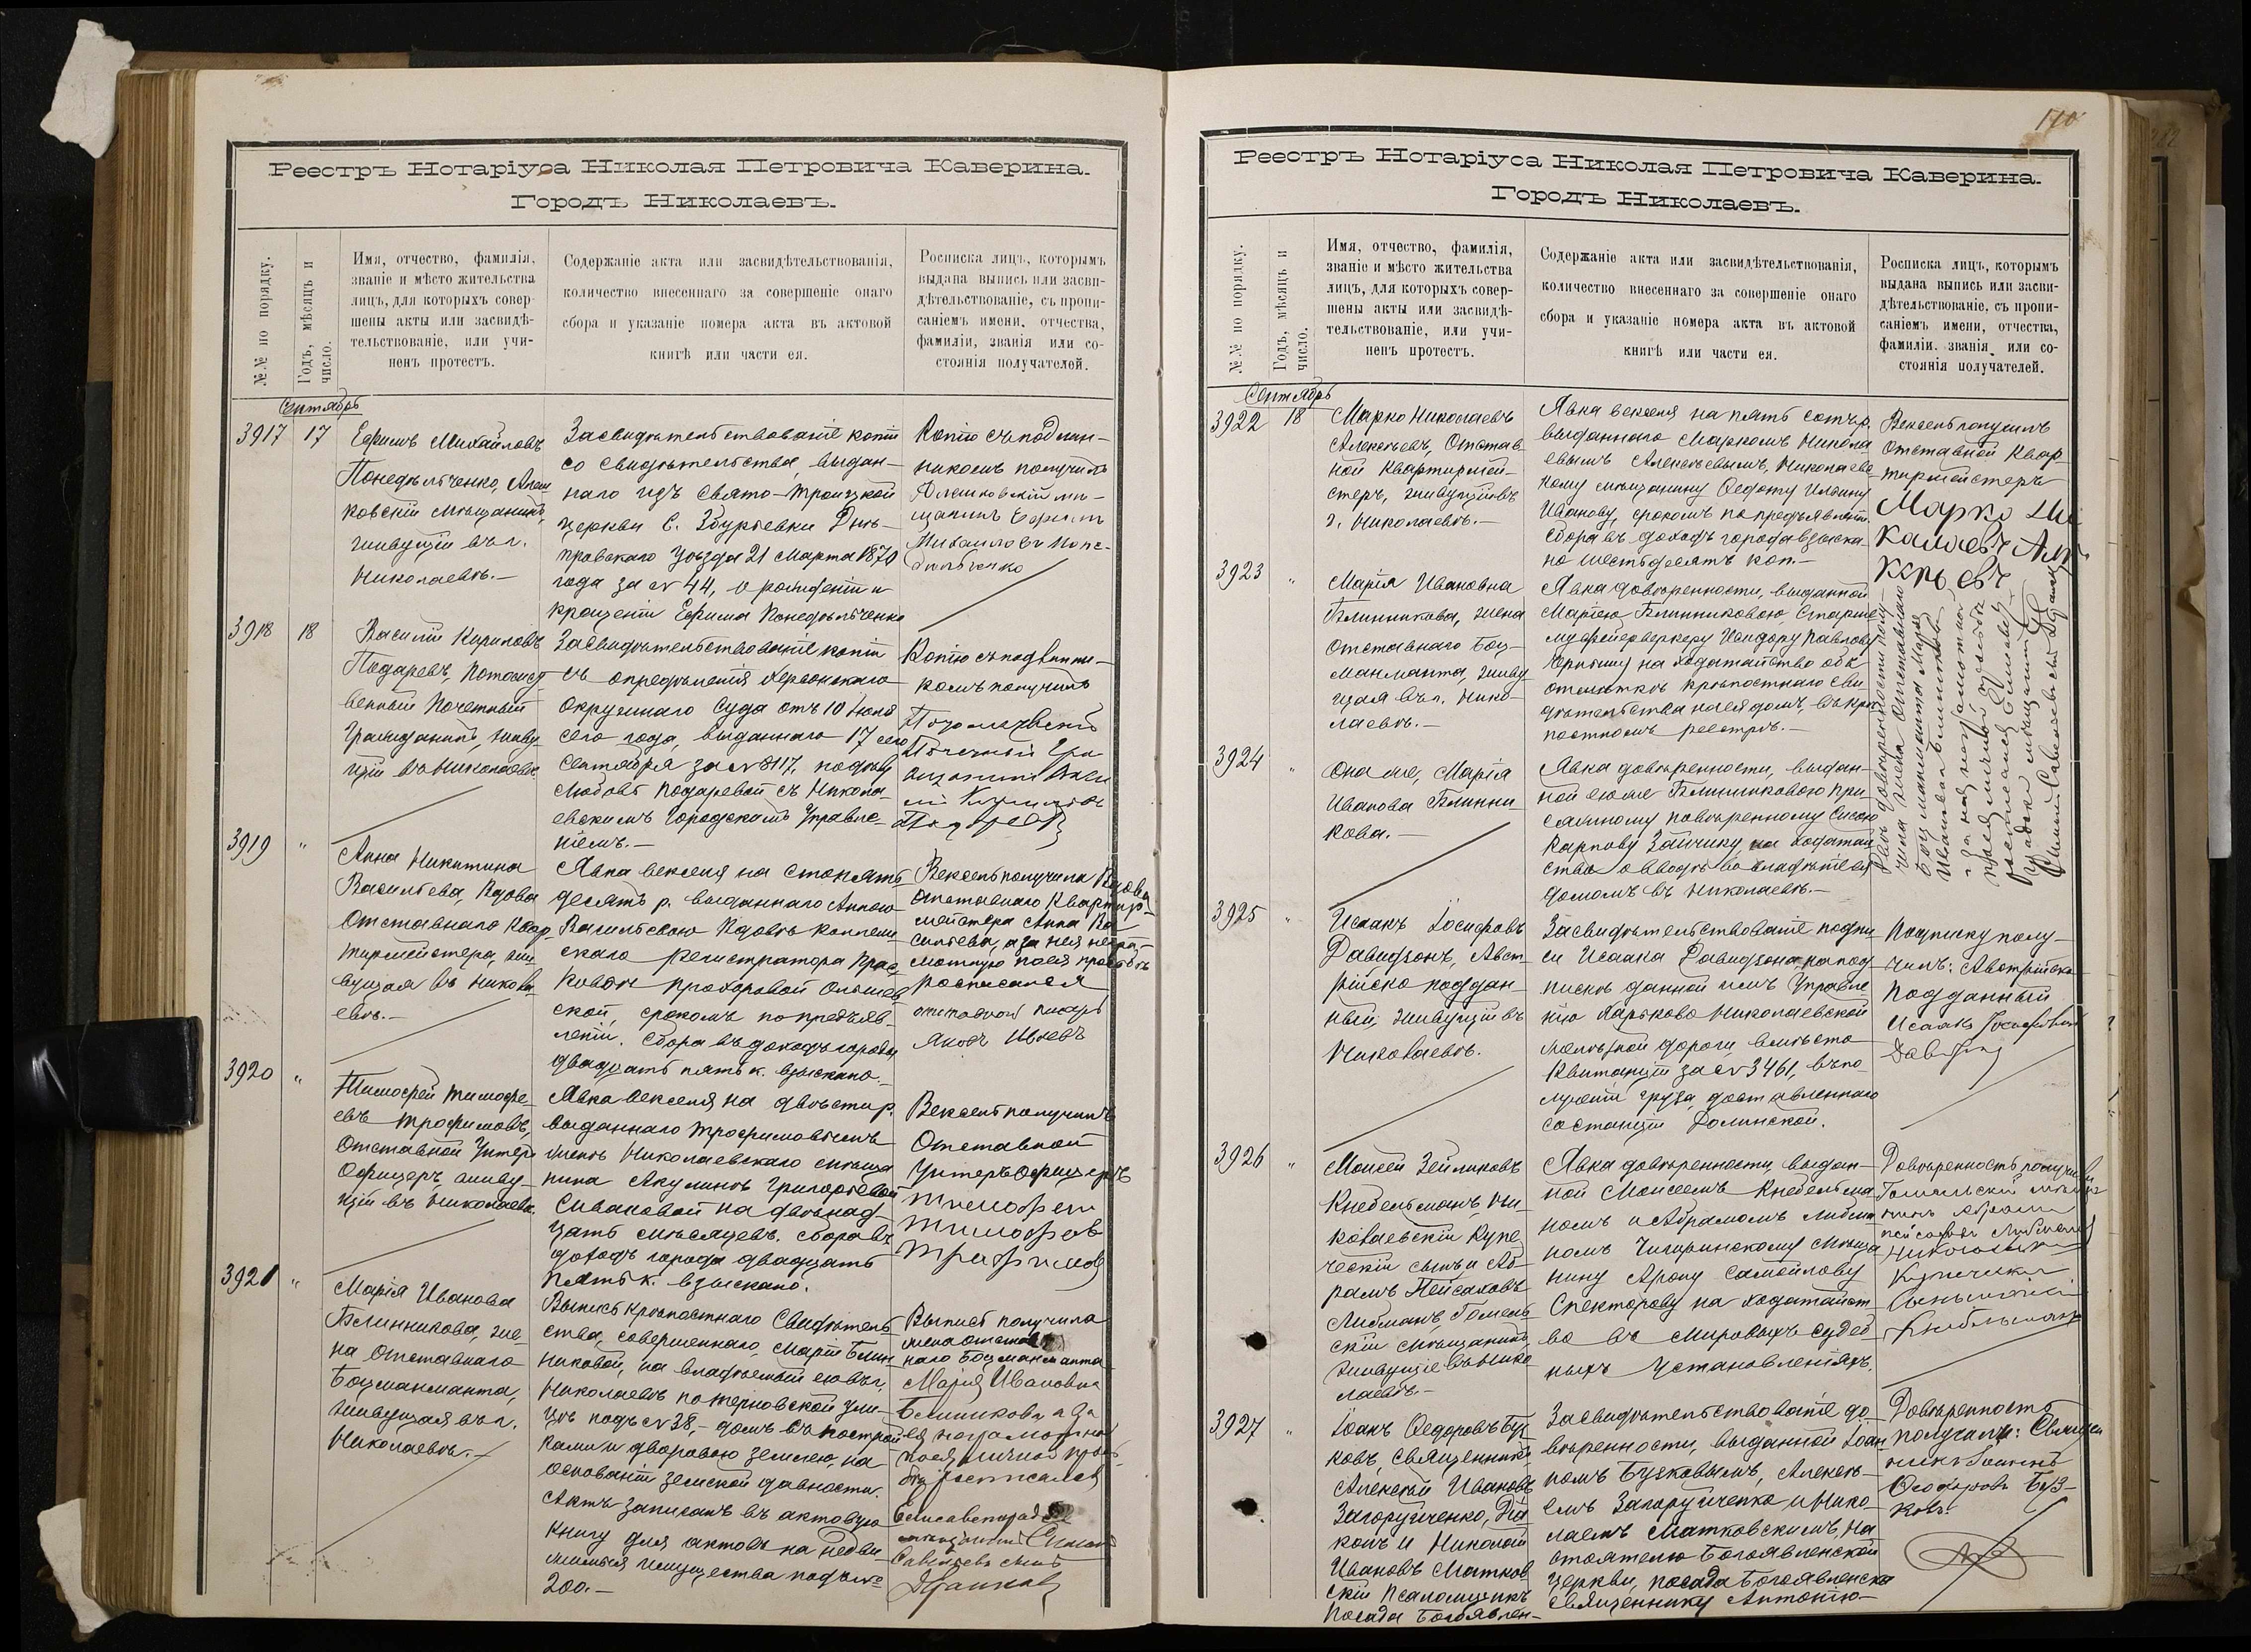 Реестръ Нотаріуса Николая Петровича Каверина.
Городъ Николаевъ.
№№ по порядку.
Годъ, мѣсяцъ и
число.
Имя, отчество, фамилія,
званіе и мѣсто жительства
лицъ, для которыхъ совер-
шены акты или засвидѣ-
тельствованіе, или учи-
ненъ протестъ.
Содержаніе акта или засвидѣтельствованія,
количество внесеннаго за совершеніе онаго
сбора и указаніе номера акта въ актовой
книгѣ или части ея.
Росписка лицъ, которымъ
выдана выпись или засви-
дѣтельствованіе, съ пропи-
саніемъ имени, отчества,
фамиліи, званія или со-
стоянія получателей.
Сентябрь
3917
17
Ефимъ Михайловъ
Понедѣльченко, Алеш
ковскій мѣщанинъ,
живущій въ г.
Николаевѣ.—
Засвидѣтельствованіе копіи
со свидѣтельства, выдан-
наго изъ Свято-Троицкой
церкви С. Збурьевки Днѣ-
провскаго уѣзда 21 Марта 1870
года за № 44, о рожденіи и
крещеніи Ефима Понедѣльченко
Копію съ подлин-
никомъ получилъ
Алешковскій мѣ-
щанинъ Ефимъ
Михайловъ Поне-
дельченко
3918
18
Василій Кириловъ
Подаревъ, Потомст
венный Почетный
Гражданинъ, живу-
щій въ Николаевѣ.
Засвидѣтельствованіе копіи
съ опредѣленія Херсонскаго
Окружнаго Суда отъ 10 Іюня
сего года, выданнаго 17 сего
Сентября за № 8117, по дѣлу
Любови Подаревой съ Никола-
евскимъ Городскимъ Управле-
ніемъ.—
Копію съ подлинни-
комъ получилъ
Почетный Гра-
3919
"
Анна Никитина
Васильева, Вдова
Отставнаго Квар-
тирмейстера, жи
вущая въ Никола
евѣ.—
Явка векселя на сто пять
десятъ р. выданнаго Анною
Васильевою Вдовѣ Коллеж
скаго Регистратора Прас
ковьи Прохоровой Ольшев
ской, срокомъ по предъяв-
леніи. Сбора въ доходъ города
двадцать пять к. взыскано.—
Вексель получила Вдова
Отставнаго Квартир-
мейстера Анна Ва
сильева, а за нея негра-
мотную по ея просьбѣ
росписался
отставной писарь
Яковъ Ивлевъ
3920
"
Тимофей Тимофе-
евъ Трофимовъ,
Отставной Унтеръ
Офицеръ, живу-
щій въ Николаевѣ.
Явка векселя на двѣсти р.
выданнаго Трофимовымъ
женѣ Николаевскаго мѣща
нина Акулинѣ Григорьевой
Сиваковой на двѣнад-
цать мѣсяцевъ. Сбора въ
доходъ города двадцать
пять к. взыскано.
Вексель получилъ
Отставной
Унтеръ Офицеръ
Тимофей
Тимофеев
Трафимов
3921
"
Марія Иванова
Блинникова, же-
на Отставнаго
Боцманмата,
живущая въ г.
Николаевѣ.—
Выпись крѣпостнаго Свидѣтель
ства, совершеннаго Маріи Блин
никовой, на владѣемый ею въ г.
Николаевѣ по Терновской ули-
цѣ подъ № 38,— домъ съ построй-
ками и дворовою землею, на
основаніи земской давности.
Актъ записанъ въ актовую
книгу для актовъ на недви
жимыя имущества подъ №
200.—
Выпись получила
жена отстав
наго Боцманмата
Марія Ивановна
Блинникова а за
ея неграмотной
по ея личной прось-
бѣ росписался
Елисаветград
мещанин
Савельевъ сынъ
110
Реестръ Нотаріуса Николая Петровича Каверина.
Городъ Николаевъ.
№№ по порядку.
Годъ, мѣсяцъ и
число.
Имя, отчество, фамилія,
званіе и мѣсто жительства
лицъ, для которыхъ совер-
шены акты или засвидѣ-
тельствованіе, или учи-
ненъ протестъ.
Содержаніе акта или засвидѣтельствованія,
количество внесеннаго за совершеніе онаго
сбора и указаніе номера акта въ актовой
книгѣ или части ея.
Росписка лицъ, которымъ
выдана выпись или засви-
дѣтельствованіе, съ пропи-
саніемъ имени, отчества,
фамиліи, званія или со-
стоянія получателей.
Сентябрь
3922
18
Марко Николаевъ
Алексѣевъ, Отстав
ной Квартирмей-
стеръ, живущій въ
г. Николаевѣ.—
Явка векселя на пять сотъ р.
выданнаго Маркомъ Никола
евымъ Алексѣевымъ, Николаевс
кому мѣщанину Федоту Ильину
Иванову, срокомъ по предъявленіи.
Сбора въ доходъ города взыска-
но шестьдесятъ коп.—
Вексель получилъ
Отставной Квар-
тирмейстеръ
Марко Ни
калаевъ Але
3923
"
Марія Ивановна
Блинникова, жена
Отставнаго Боц-
манмата, живу
щая въ г. Нико-
лаевѣ.—
Явка довѣренности, выданной
Маріею Блинниковою, Старше
му фейерверкеру Исидору Павлову
на ходатайство объ
отмѣткѣ крѣпостнаго сви
дѣтельства на ея домъ, въ крѣ
постномъ реестрѣ.—
3924
"
Она же, Марія
Иванова Блинни
кова.—
Явка довѣренности, выдан-
ной ею же Блинниковою при-
сяжному повѣренному Сысою
Карпову Зайчику, на ходатай
ство о вводѣ во владѣніе ея
домомъ въ Николаевѣ.—
Двѣ довѣренности полу-
чила жена Отставнаго
Боцманмата Марія
Иванова Блинникова
а за нея неграмотной
по ея личной просьбѣ
росписался Елисавет
градскій мѣщанинъ
3925
"
Исаакъ Іосифовъ
Давидзонъ, Авст-
рійско поддан
ный, живущій въ
Николаевѣ.
Засвидѣтельствованіе подпи-
си Исаака Давидзона, на под
пискѣ данной имъ Управле
нію Харьково Николаевской
желѣзной дороги вмѣсто
Квитанціи за № 3461, въ по-
лученіи груза, доставленнаго
со станціи Долинской.
Подписку полу-
чилъ: Австрійско
Подданный
Исаакъ Іосифовъ
3926
"
Моисей Зейликовъ
Кнебельманъ, Ни-
колаевскій Купе
ческій сынъ и Аб-
рамъ Пейсаховъ
Либманъ, Гомель
скій мѣщанинъ,
живущіе въ Нико
лаевѣ.—
Явка довѣренности, выдан-
ной Моисеемъ Кнебельма
номъ и Абрамомъ Либма
номъ Чигиринскому мѣща
нину Арону Самойлову
Спекторову на ходатайст
во въ Мировыхъ Судеб-
ныхъ Установленіяхъ.
Довѣренность получили
Гомельскій мѣща
нинъ Абрамъ
Пейсаховъ Либманъ
3927
"
Іоанъ Федоровъ Буз
ковъ, Священникъ,
Алексѣй Ивановъ
Загоруйченко, Діа
конъ и Николай
Ивановъ Матков
скій Псаломщикъ
Посада Богоявлен-
Засвидѣтельствованіе до-
вѣренности, выданной Іоан
номъ Бузковымъ, Алексѣ-
емъ Загоруйченко и Нико-
лаемъ Матковскимъ, На-
стоятелю Богоявленской
Церкви, посада Богоявленска
Священнику Антонію—
Довѣренность
получилъ: Священ
никъ Іоаннъ
Феодоровъ Буз-
ковъ.